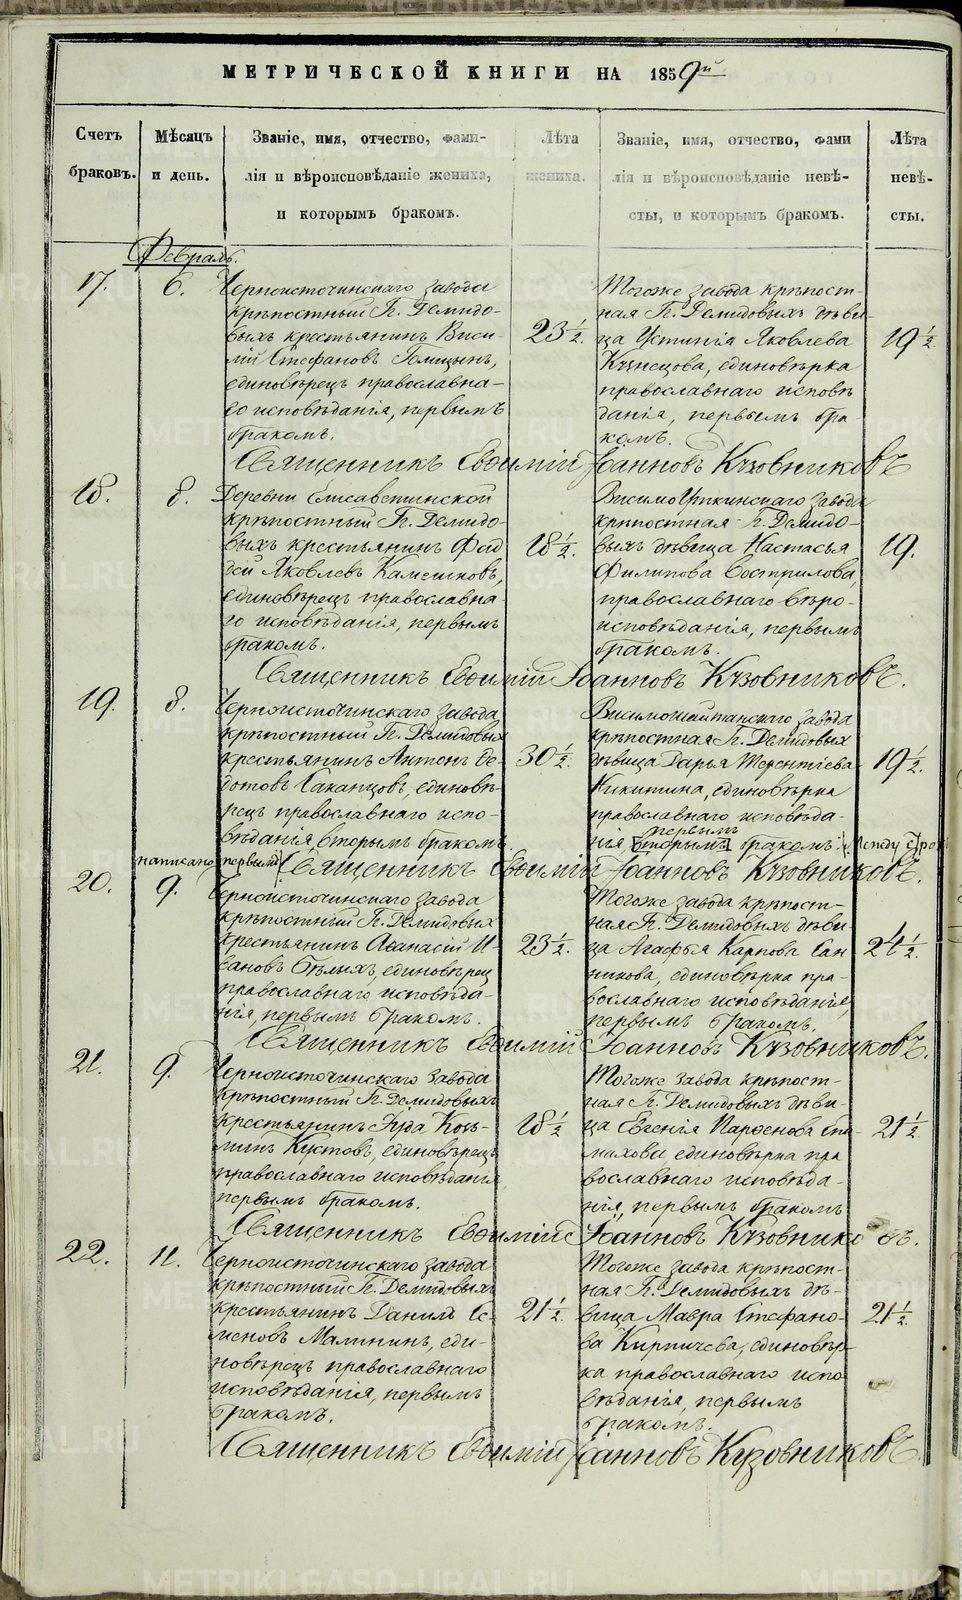 МЕТРИЧЕСКОЙ КНИГИ НА 1859й
Счетъ
браковъ.
Мѣсяцъ
и день.
Званіе, имя, отчество, фами-
лія и вѣроисповѣданіе жениха,
и которымъ бракомъ.
Лѣта
жениха.
Званіе, имя, отчество, фами
лія и вѣроисповѣданіе невѣ-
сты, и которымъ бракомъ.
Лѣта
невѣ-
сты.
Февраль.
17.
6.
Черноисточинскаго завода
крѣпостный Г. Демидо-
выхъ крестьянинъ Васи-
лій Стефановъ Голицынъ,
единовѣрецъ православна-
го исповѣданія, первымъ
бракомъ.
23 1/2.
Тогоже завода крѣпост-
ная Г. Демидовыхъ дѣви
ца Устинія Яковлева
Кузнецова, единовѣрка
православнаго исповѣ
данія, первымъ бра
комъ.
19 1/2.
Священникъ Евѳимій Іоанновъ Кузовниковъ
18.
8.
Деревни Елисаветинской
крѣпостный Г. Демидо-
выхъ крестьянинъ Фад
дей Яковлевъ Камешковъ,
единовѣрецъ православна-
го исповѣданія, первымъ
бракомъ.
18 1/2.
Висимоуткинскаго завода
крѣпостная Г. Демидо-
выхъ дѣвица Настасья
Филипова Вострилова,
православнаго вѣро-
исповѣданія, первымъ
бракомъ.
19.
Священникъ Евѳимій Іоанновъ Кузовниковъ.
19.
8.
Черноисточинскаго завода
крѣпостный Г. Демидовыхъ
крестьянинъ Антонъ Ѳе-
дотовъ Саканцовъ, единовѣ-
рецъ православнаго испо-
вѣданія, вторымъ бракомъ.
30 1/2.
Висимошайтанскаго завода
крѣпостная Г. Демидовыхъ
дѣвица Дарья Терентіева
Никитина, единовѣрка
православнаго исповѣда-
первымъ
нія, вторымъ бракомъ. Между строкъ
19 1/2.
написано первымъ Священникъ Евѳимій Іоанновъ Кузовниковъ.
20.
9.
Черноисточинскаго завода
крѣпостный Г. Демидовыхъ
крестьянинъ Аѳанасій И-
вановъ Бѣлыхъ, единовѣрец
православнаго исповѣда-
нія, первымъ бракомъ.
23 1/2.
Тогоже завода крѣпост-
ная Г. Демидовыхъ дѣви
ца Агафья Карпова Сан
никова, единовѣрка пра-
вославнаго исповѣданія,
первымъ бракомъ.
24 1/2.
Священникъ Евѳимій Іоанновъ Кузовниковъ.
21.
9.
Черноисточинскаго завода
крѣпостный Г. Демидовыхъ
крестьянинъ Іуда Козь-
минъ Кустовъ, единовѣрецъ
православнаго исповѣданія
первымъ бракомъ.
18 1/2
Тогоже завода крѣпост-
ная Г. Демидовыхъ дѣви-
ца Евгенія Парѳенова
единовѣрка пра
вославнаго исповѣда-
нія, первымъ бракомъ
21 1/2
Священникъ Евѳимій Іоанновъ Кузовниковъ.
22.
11.
Черноисточинскаго завода
крѣпостный Г. Демидовыхъ
крестьянинъ Данилъ Се-
меновъ Малининъ, еди-
новѣрецъ православнаго
исповѣданія, первымъ
бракомъ.
21 1/2.
Тогоже завода крѣпост-
ная Г. Демидовыхъ дѣ-
вица Мавра Стефано-
ва Кирпичева, единовѣр-
ка православнаго испо
вѣданія, первымъ
бракомъ.
21 1/2.
Священникъ Евѳимій Іоанновъ Кузовниковъ.
METRIKI.GASO-URAL.RU